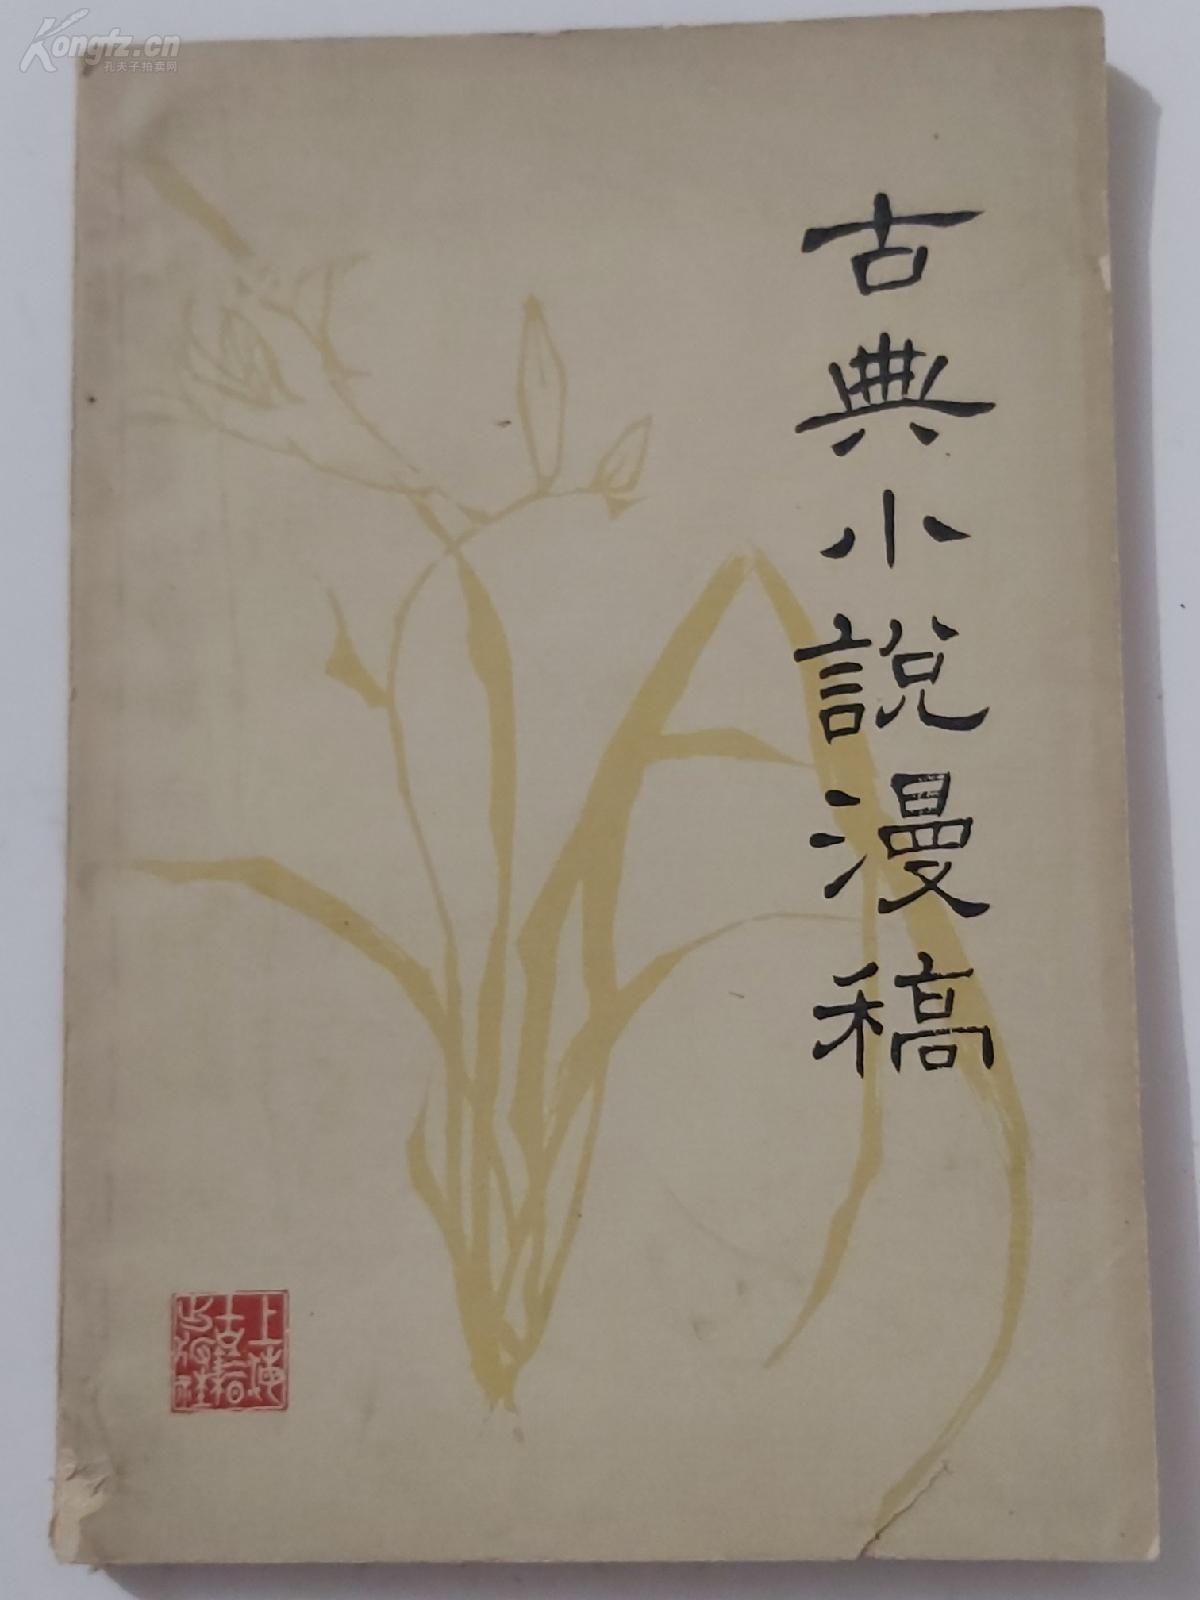 Kongfz.cn
孔夫子拍卖网
古典小說漫稿
上海
古籍
出版社